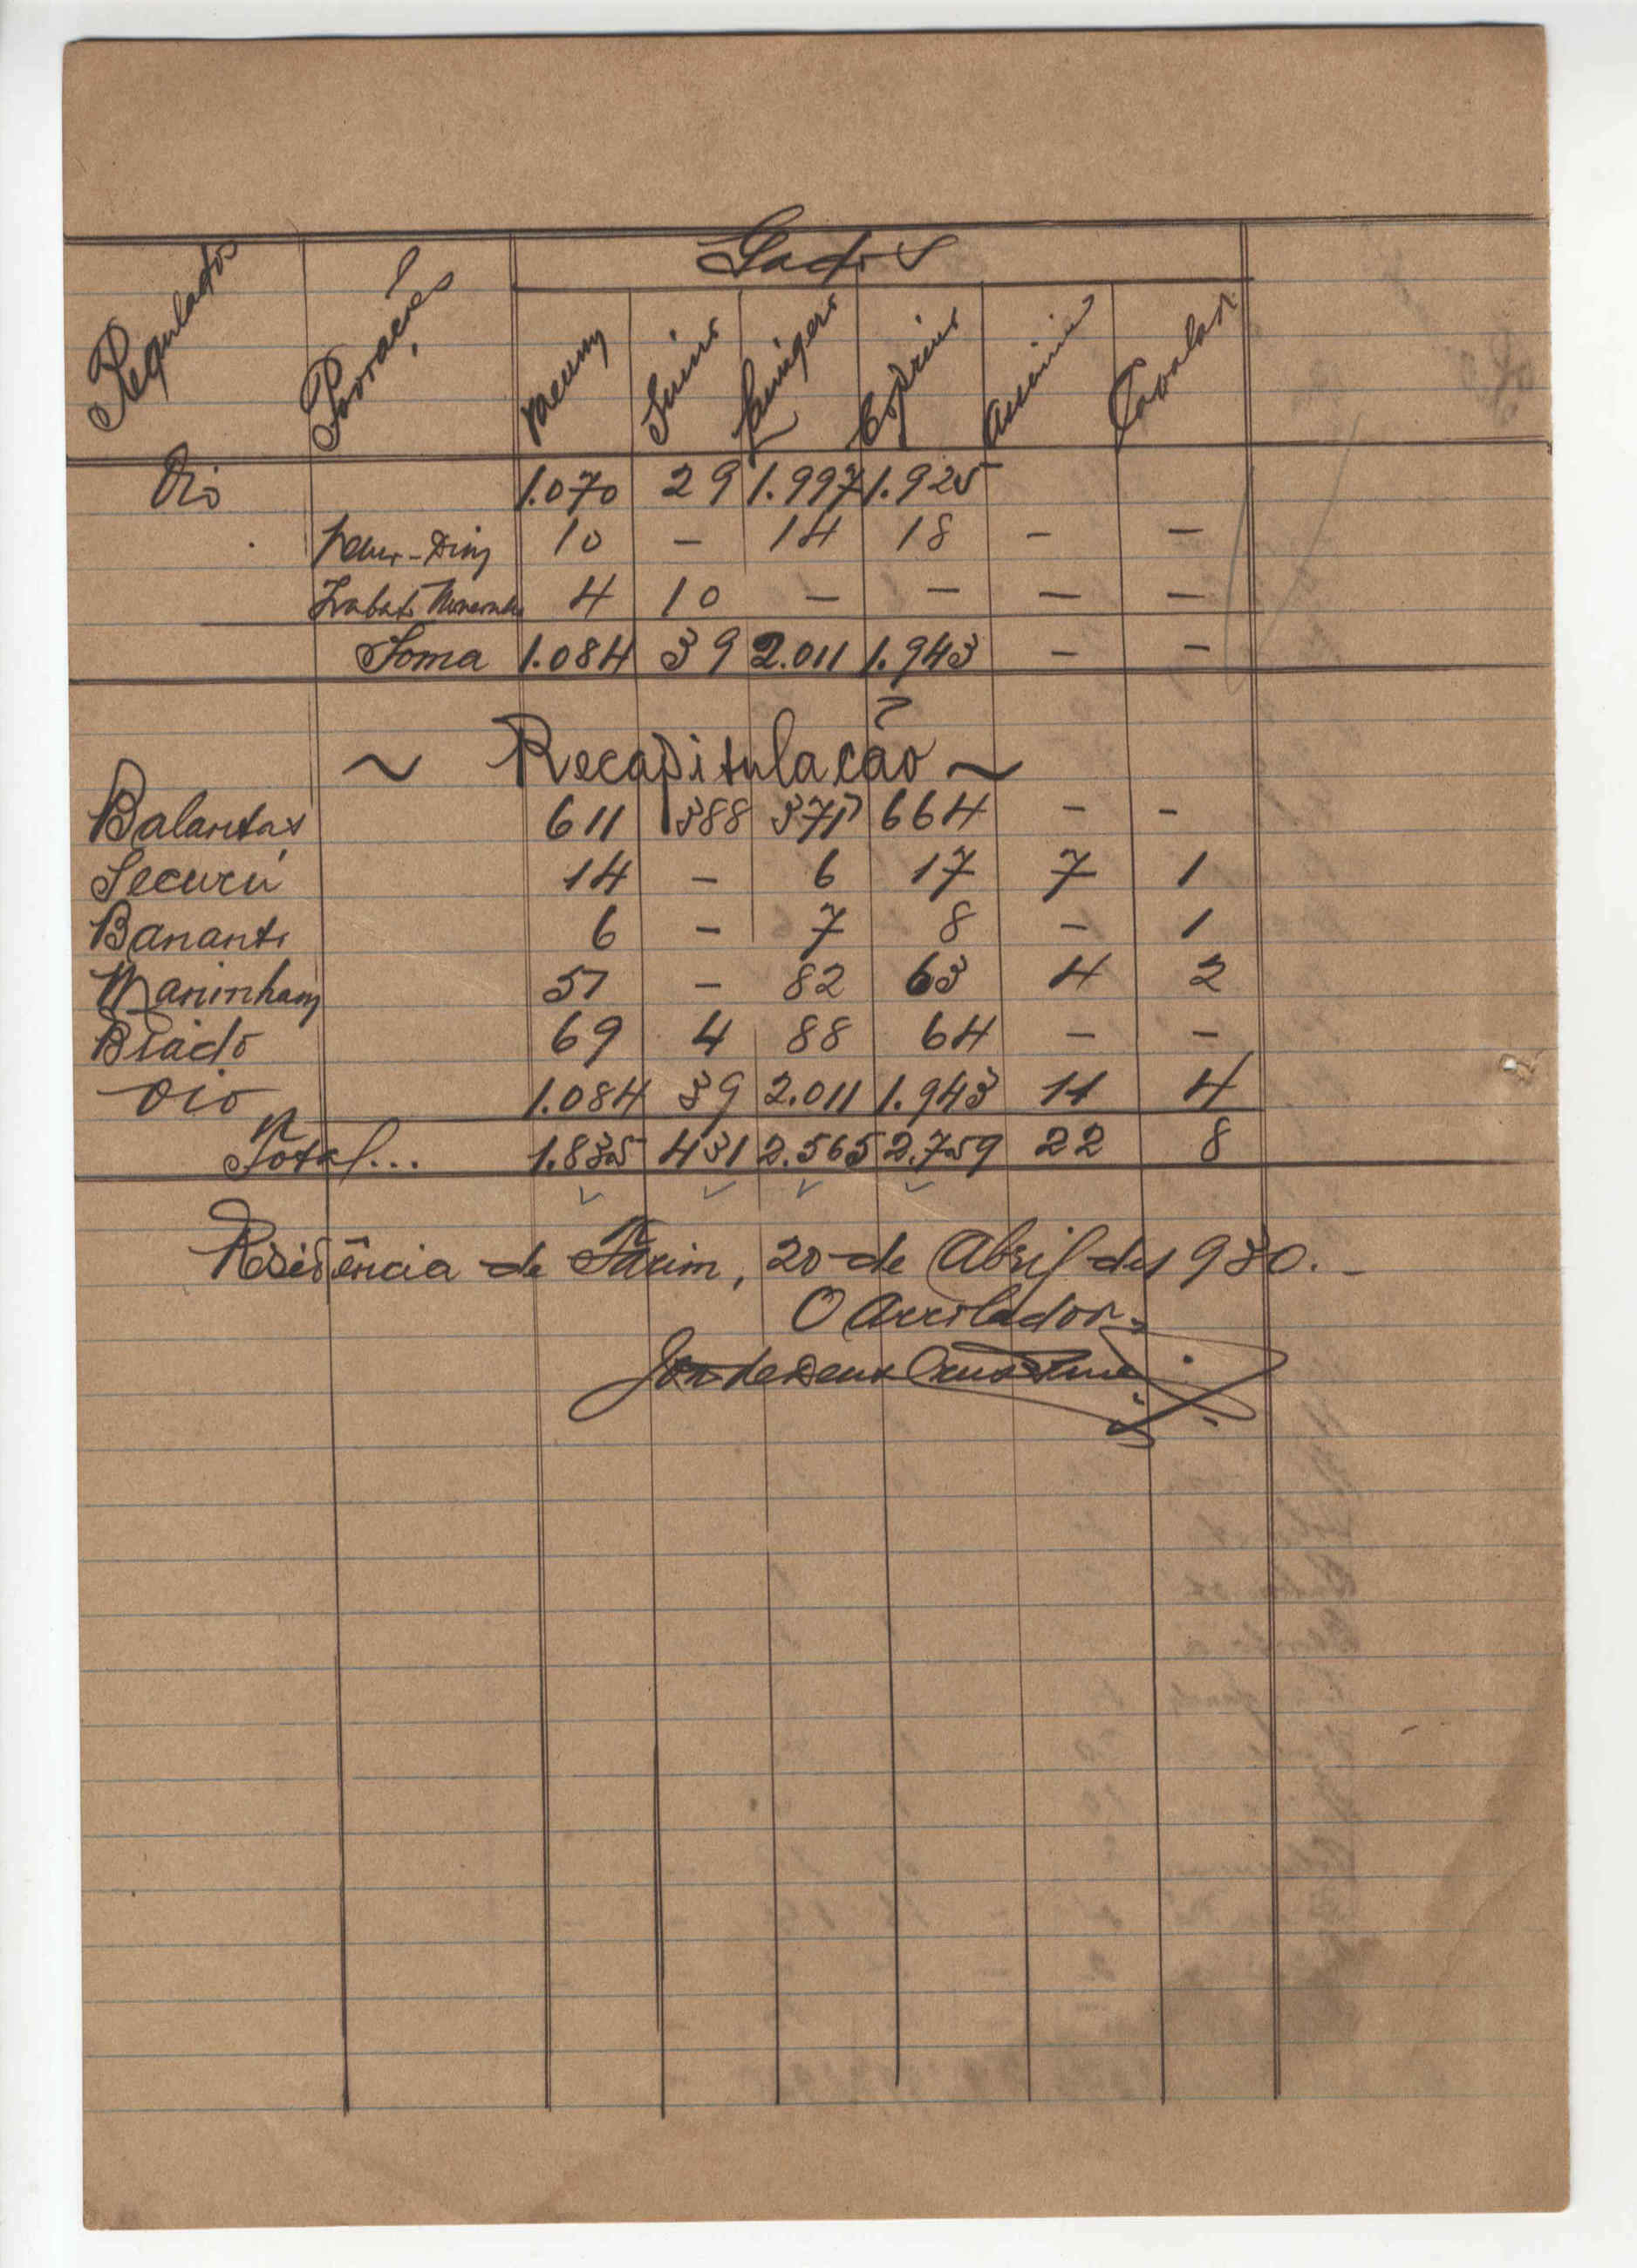 Gados
Regulados Povoações vacum Suino Lanigero Caprino asinino Cavalar
Oio 1.070 29 1.997 1.925
10 - 14 18 - -
4 10 - - - -
Soma 1.084 39 2.011 1.943 - -
~ Recapitulação ~
Balantas 611 388 371 664 - -
Securú 14 - 6 17 7 1
Bananto 6 - 7 8 - 1
51 - 82 63 4 2
Biádo 69 4 88 64 - -
Oio 1.084 39 2.011 1.943 11 4
Total... 1.835 431 2.565 2.759 22 8
Residência de Farim, 20 de Abril de 1930.-
O Arrolador,